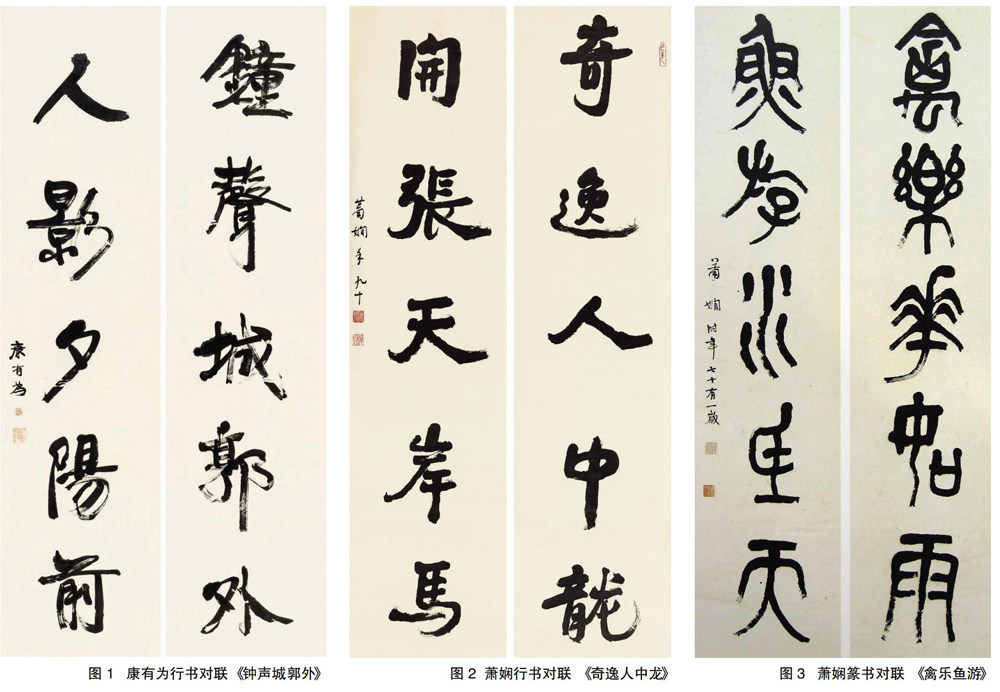 鐘聲城郭外
人影夕陽前
康有為
奇逸人中龍
開張天岸馬
蕭嫻年九十
禽樂華如雨
魚游水在天
蕭嫻時年七十有一歲
图 1 康有为行书对联《钟声城郭外》
图 2 萧娴行书对联 《奇逸人中龙》
图 3 萧娴篆书对联 《禽乐鱼游》